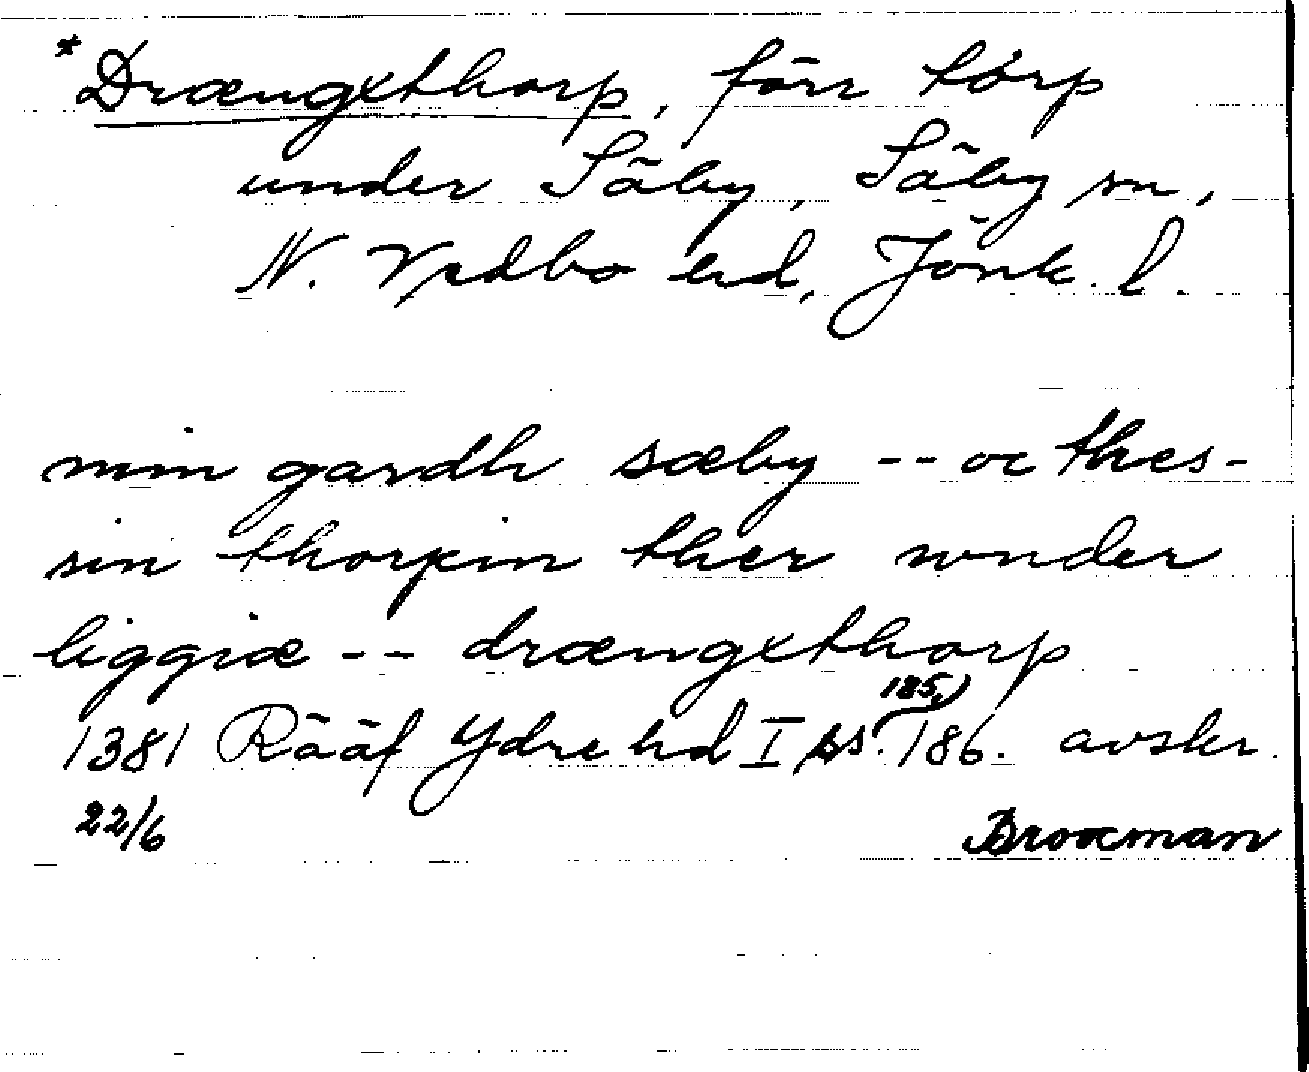 *Drængxthorp, förr torp
under Säby, Säby sn,
N. Vedbo hd, Jönk. l.
min gardh sæby -- oc thes-
sin thorpin ther wnder
liggiæ -- drængxthorp
1381 Rääf Ydre hd I ss. 185, 186. avskr.
22/6 Brocman